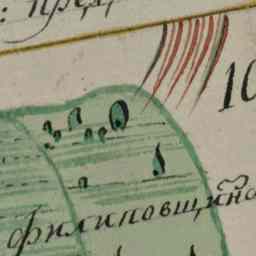 : пред
10
филиповщина